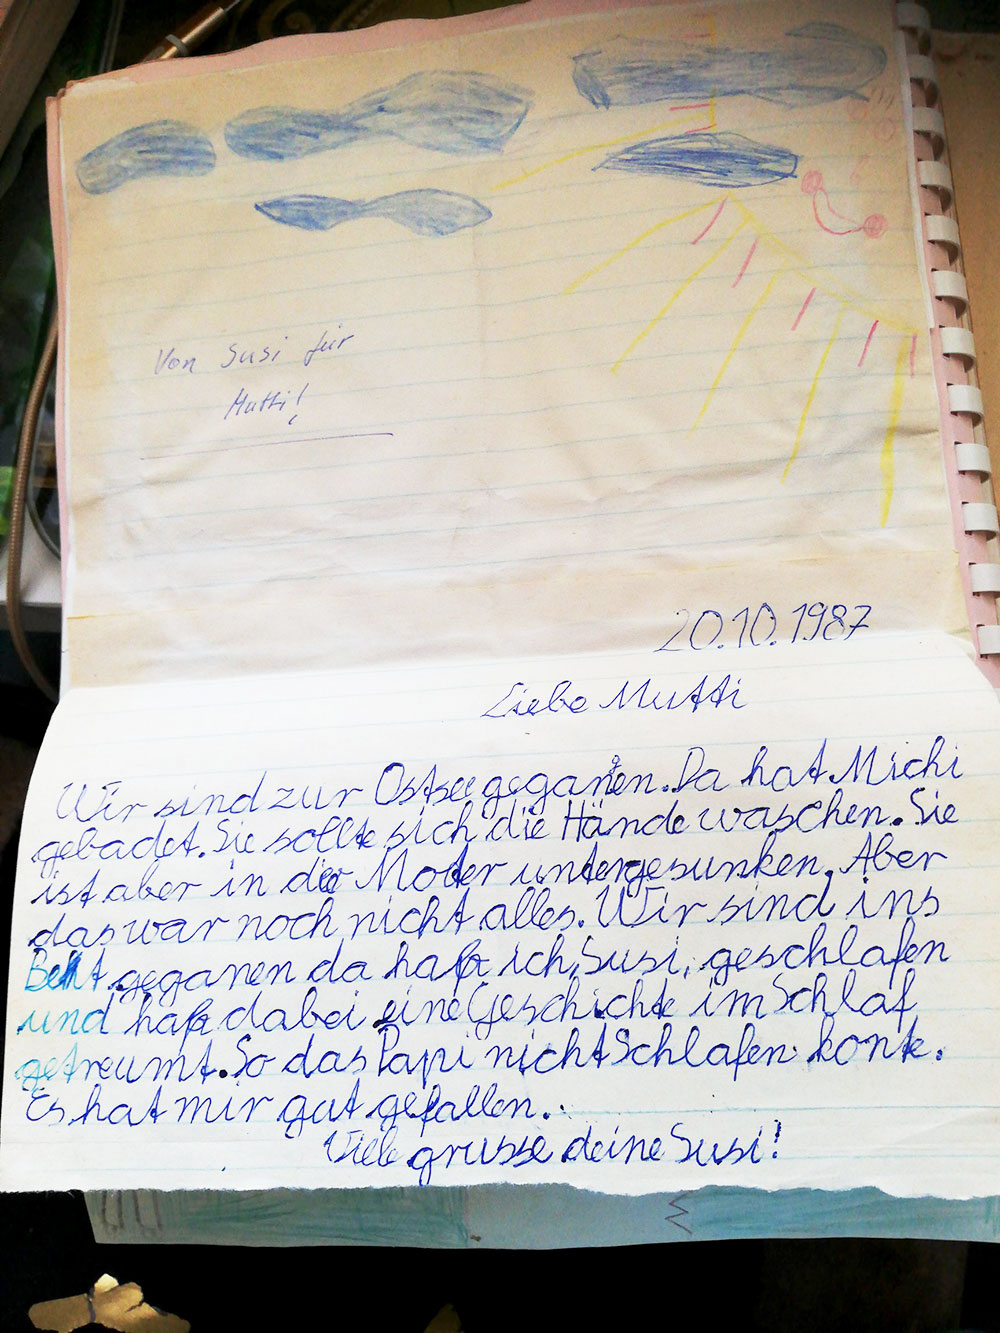 Von Susi für
Mutti!
20.10.1987
Liebe Mutti
Wir sind zur Ostsee geganen. Da hat Michi
gebadet. Sie sollte sich die Hände waschen. Sie
ist aber in der Moder untergesunken. Aber
das war noch nicht alles. Wir sind ins
Bett geganen da habe ich, Susi, geschlafen
und habe dabei eine Geschichte im Schlaf
getreumt. So das Papi nicht Schlafen konte.
Es hat mir gut gefallen.
Viele grusse deine Susi!